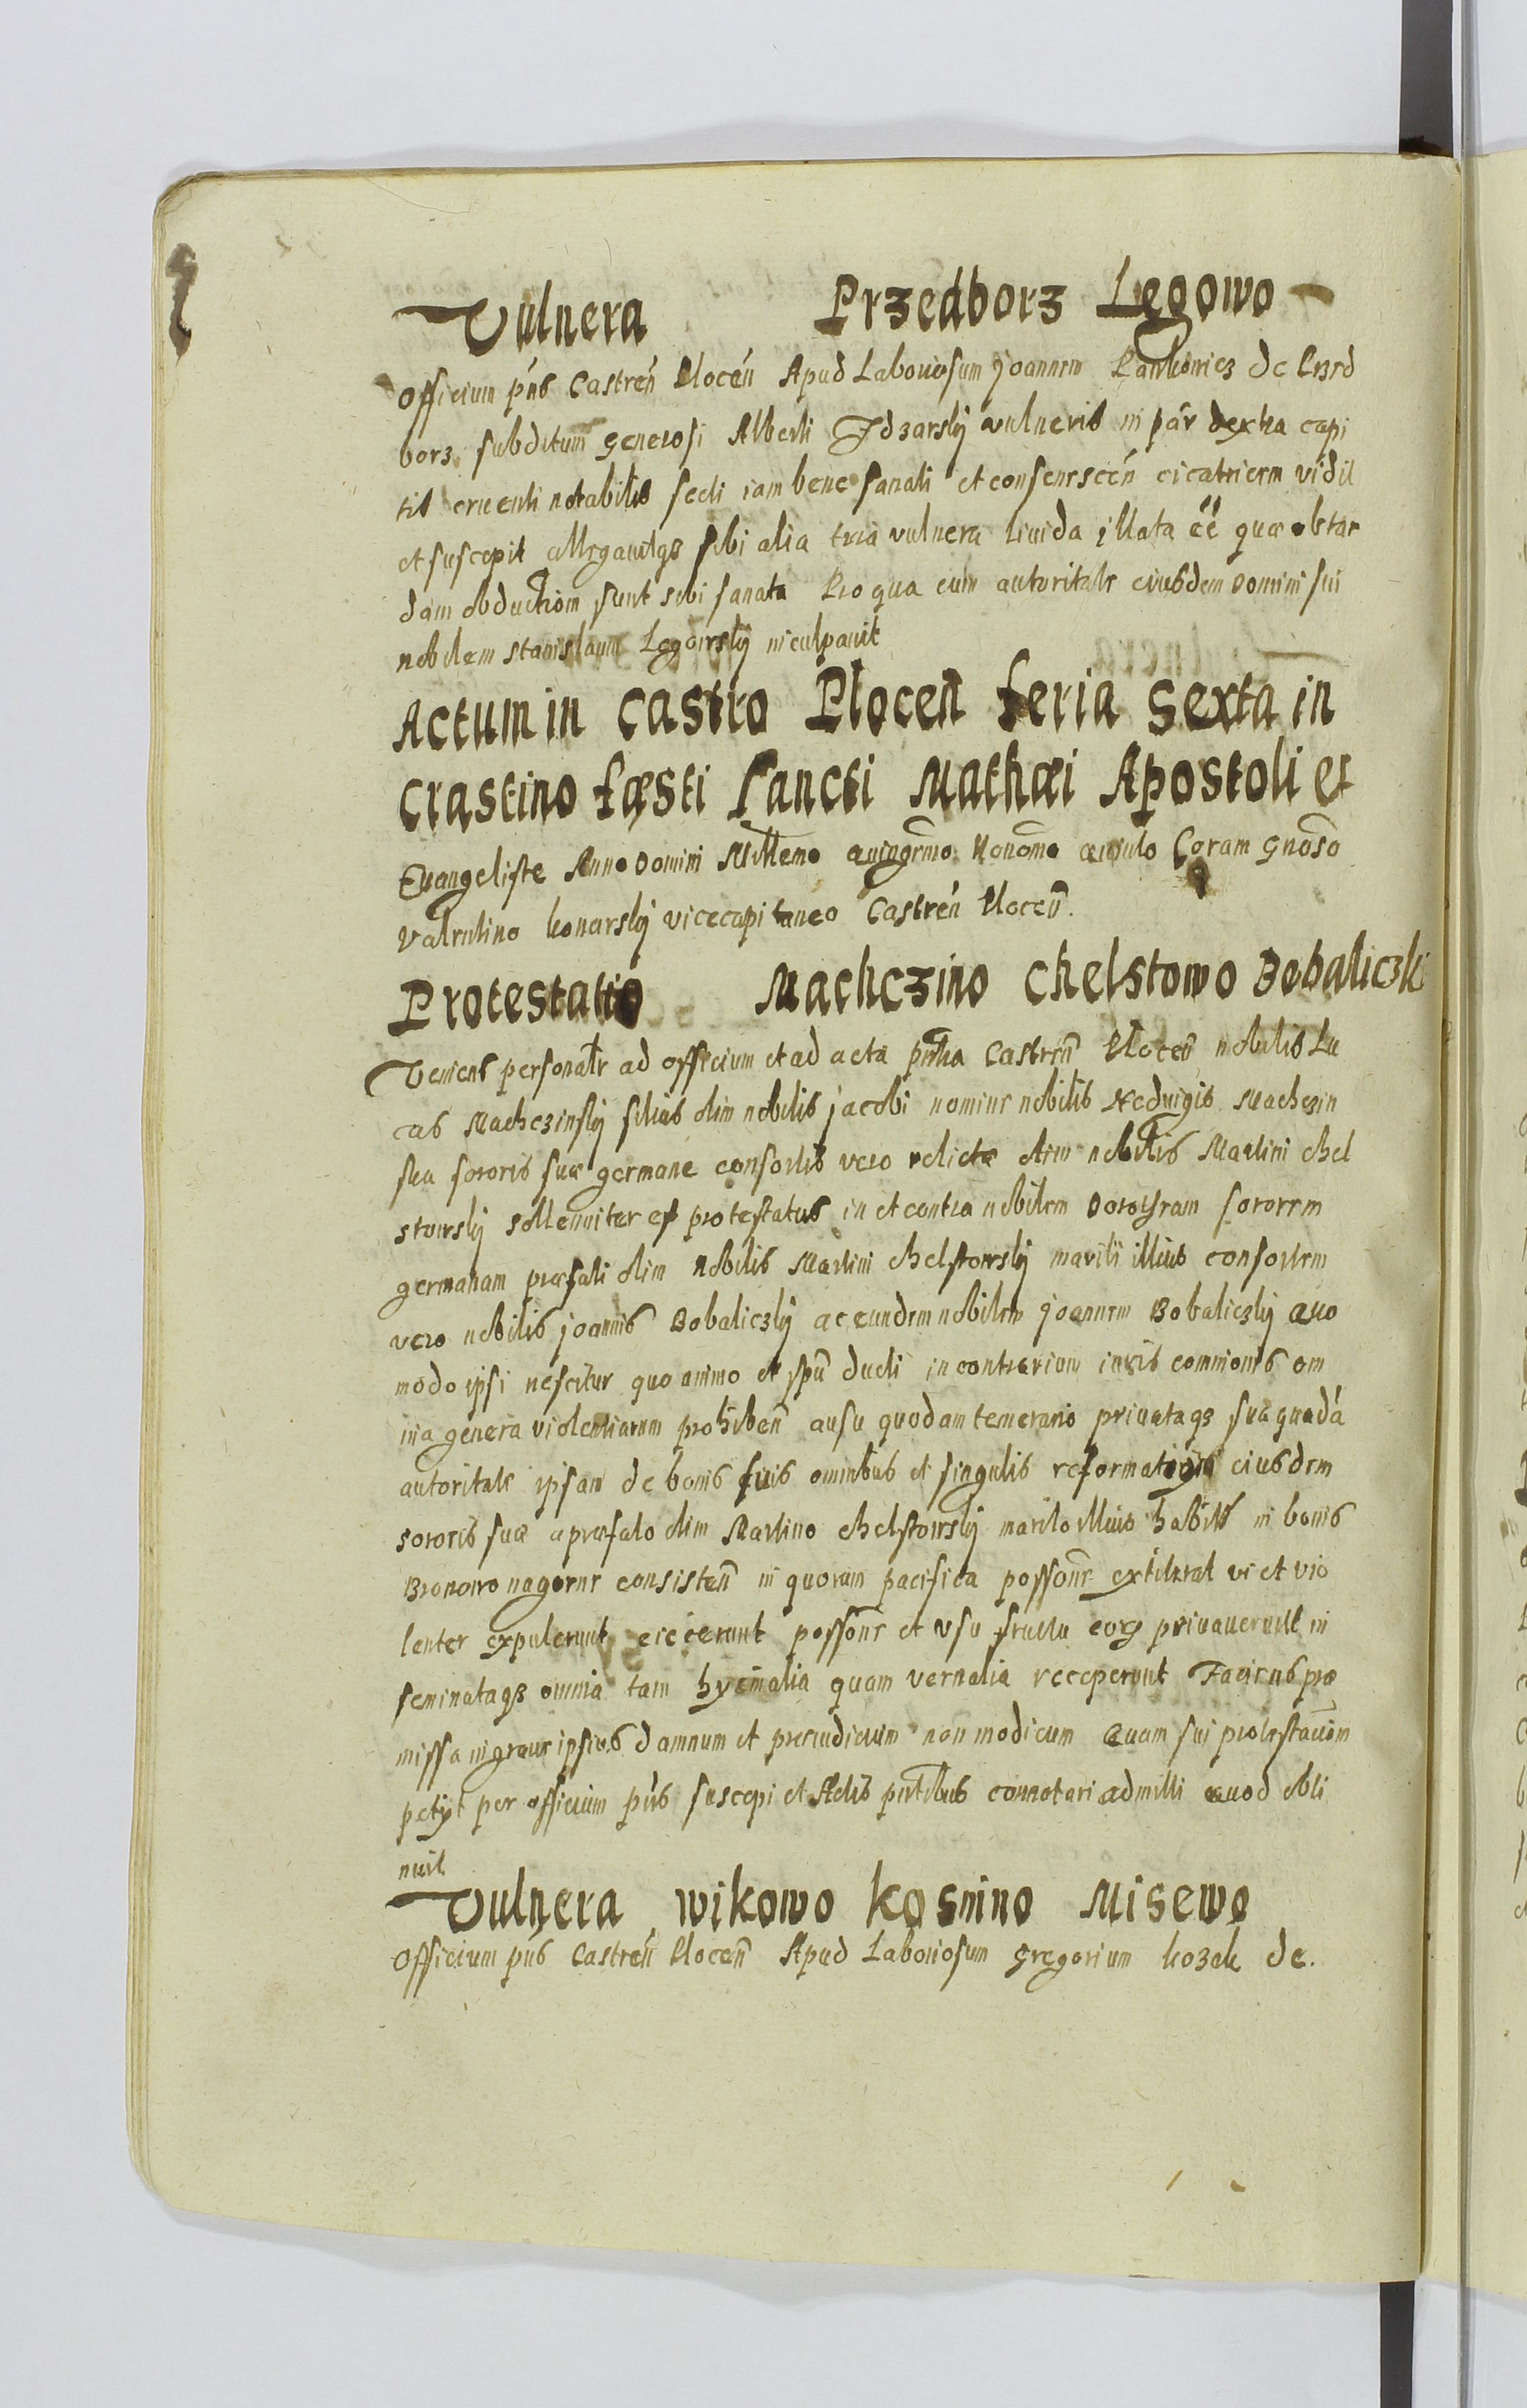 Vulnera Przedborz Legowo
Officium pñs Castreñ Ploceñ Apud Laboriosum Joannem Pawłowicz de Przed
borz subditum generosi Alberti Idzarskÿ vulneris in par dextra capi
tis cruenti notabilis secti iam bene sanati et consenescẽn cicatricem vidit
et suscepit allegavitqз sibi alia tria vulnera livida illata ẽẽ quæ
dam obductiom sunt sibi sanata Pro qua cum autoritate eiusdem domini sui
nobilem stanislaum Legowskÿ inculpavit
Actum in Castro Ploceñ feria sexta in
Crastino fæsti sancti Mathæi Apostoli et
Evangeliste Anno Domini Millemo quingẽmo Nonõmo Coram gnõso
Valentino konarskÿ vicecapitaneo Castreñ Ploceñ.
Protestatio Machczino Chelstowo Bobaliczki
Veniens personaltr ad officium et ad acta pñtia Castreñ Ploceñ nobilis Lu
cas Machczinskÿ filius olim nobilis Jacobi nomine nobilis Hedvigis Machczin
ska sororis suæ germane consortis vero relictæ olim nobilis Martini chel
stowskÿ sollenniter est protestatus in et contra nobilem Dorotheam sororem
germanam præfati olim nobilis Martini chelstowskÿ mariti illius consortem
vero nobilis Joannis Bobaliczkÿ ac eundem nobilem Joannem Bobaliczkÿ quo
modo ipsi nescitur quo animo et spũ ducti in contrarium iuris communis om
nia genera violentiarum prohibeñ ausu quodam temerario privataqз sua quadã
autoritate ipsam de bonis suis omnibus et singulis reformationis eiusdem
sororis suæ a præfato olim Martino chelstowskÿ marito illius habitis in bonis
Bronowo nagorne consisteñ in quorum pacifica possõne extiterat vi et vio
lenter expulerunt eiecerunt possõne et usu fructu eorꝫ privaverunt in
seminataqз omnia tam hyemalia quam vernalia receperunt Faciens præ
missa in grave ipsius damnum et preiudicium non modicum Quam sui protestationem
petÿt per officium pñs suscepi et Actis pñtibus connotari admitti quod obti
nuit
Vulnera wikowo kosnino Misewo
Officium pñs Castreñ Ploceñ Apud Laboriosum Gregorium kozak de.